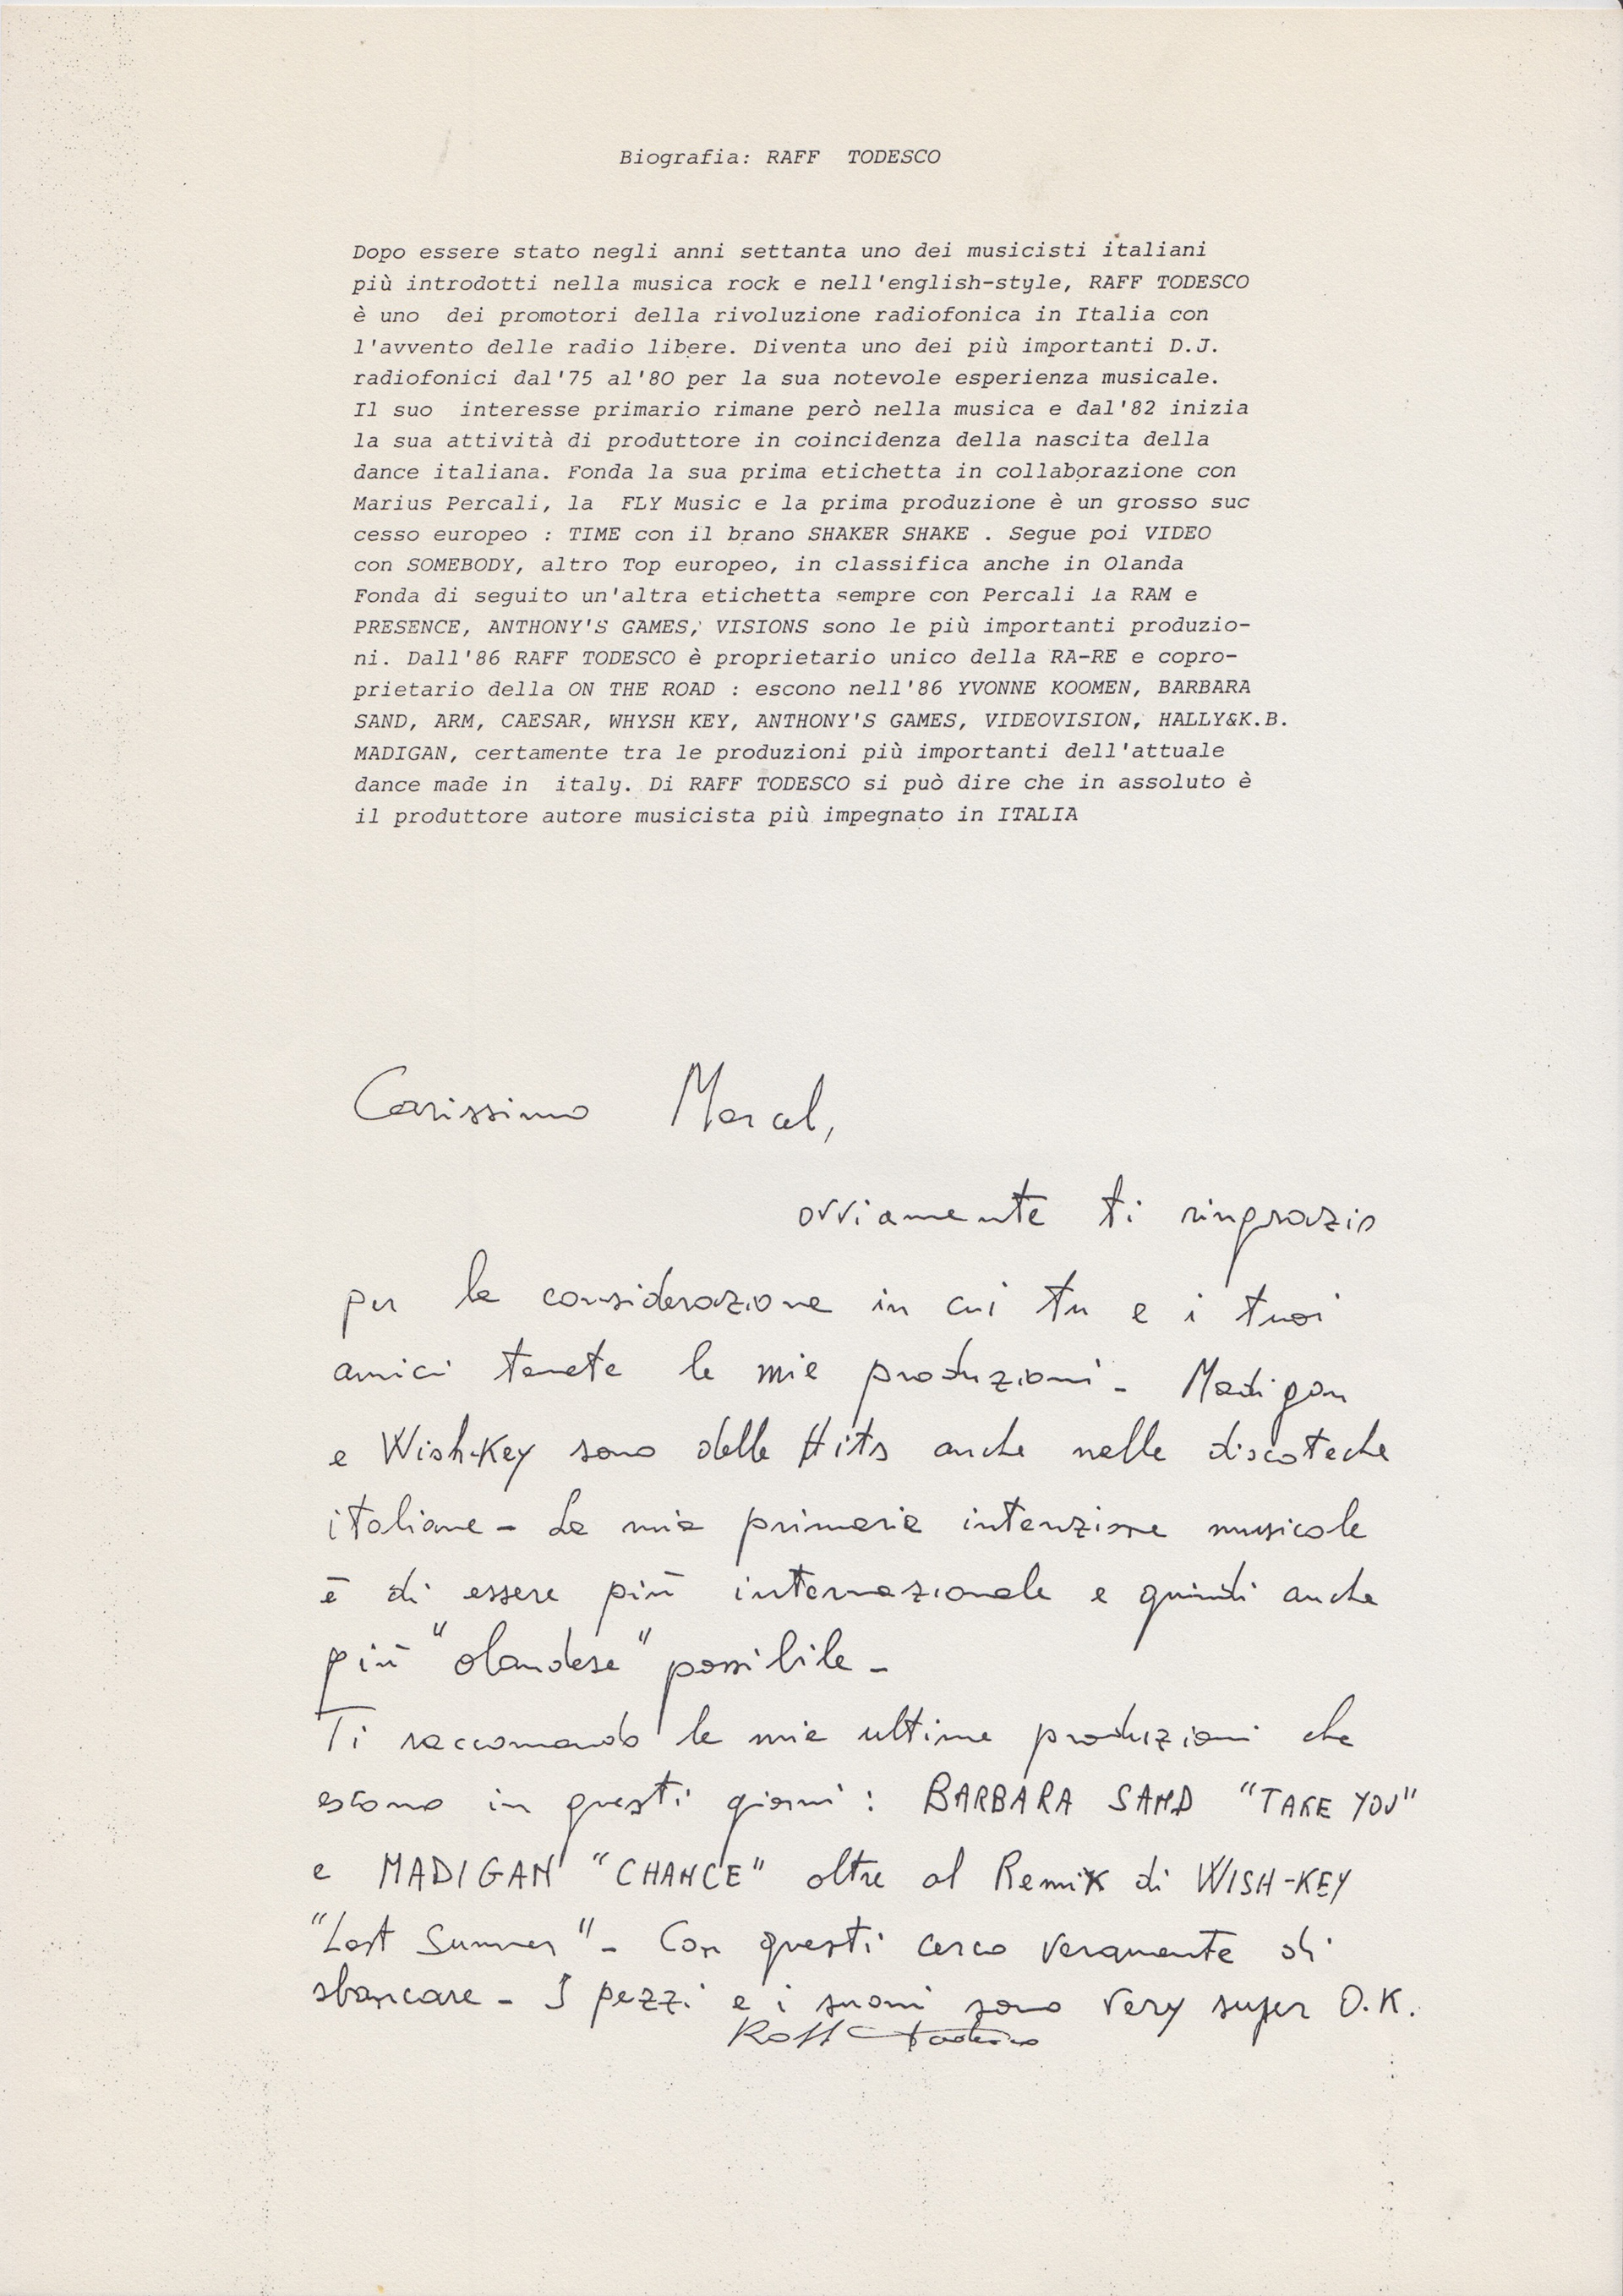 Biografia: RAFF TODESCO
Dopo essere stato negli anni settanta uno dei musicisti italiani
più introdotti nella musica rock e nell'english-style, RAFF TODESCO
è uno dei promotori della rivoluzione radiofonica in Italia con
l'avvento delle radio libere. Diventa uno dei più importanti D.J.
radiofonici dal'75 al'80 per la sua notevole esperienza musicale.
Il suo interesse primario rimane però nella musica e dal'82 inizia
la sua attività di produttore in coincidenza della nascita della
dance italiana. Fonda la sua prima etichetta in collaborazione con
Marius Percali, la FLY Music e la prima produzione è un grosso suc
cesso europeo : TIME con il brano SHAKER SHAKE . Segue poi VIDEO
con SOMEBODY, altro Top europeo, in classifica anche in Olanda
Fonda di seguito un'altra etichetta sempre con Percali la RAM e
PRESENCE, ANTHONY'S GAMES, VISIONS sono le più importanti produzio-
ni. Dall'86 RAFF TODESCO è proprietario unico della RA-RE e copro-
prietario della ON THE ROAD : escono nell'86 YVONNE KOOMEN, BARBARA
SAND, ARM, CAESAR, WHYSH KEY, ANTHONY'S GAMES, VIDEOVISION, HALLY&K.B.
MADIGAN, certamente tra le produzioni più importanti dell'attuale
dance made in italy. Di RAFF TODESCO si può dire che in assoluto è
il produttore autore musicista più impegnato in ITALIA
Carissimo Marcel,
ovviamente ti ringrazio
per la considerazione in cui tu e i tuoi
amici tenete le mie produzioni - Madigan
e Wish-Key sono delle Hits anche nelle discoteche
italiane - La mia primaria intenzione musicale
è di essere più internazionale e quindi anche
più "olandese" possibile -
Ti raccomando le mie ultime produzioni che
escono in questi giorni : BARBARA SAND "TAKE YOU"
e MADIGAN "CHANCE" oltre al Remix di WISH-KEY
"Last Summer" - Con questi cerco veramente di
sbancare - I pezzi e i suoni sono very super O.K.
Raff Todesco